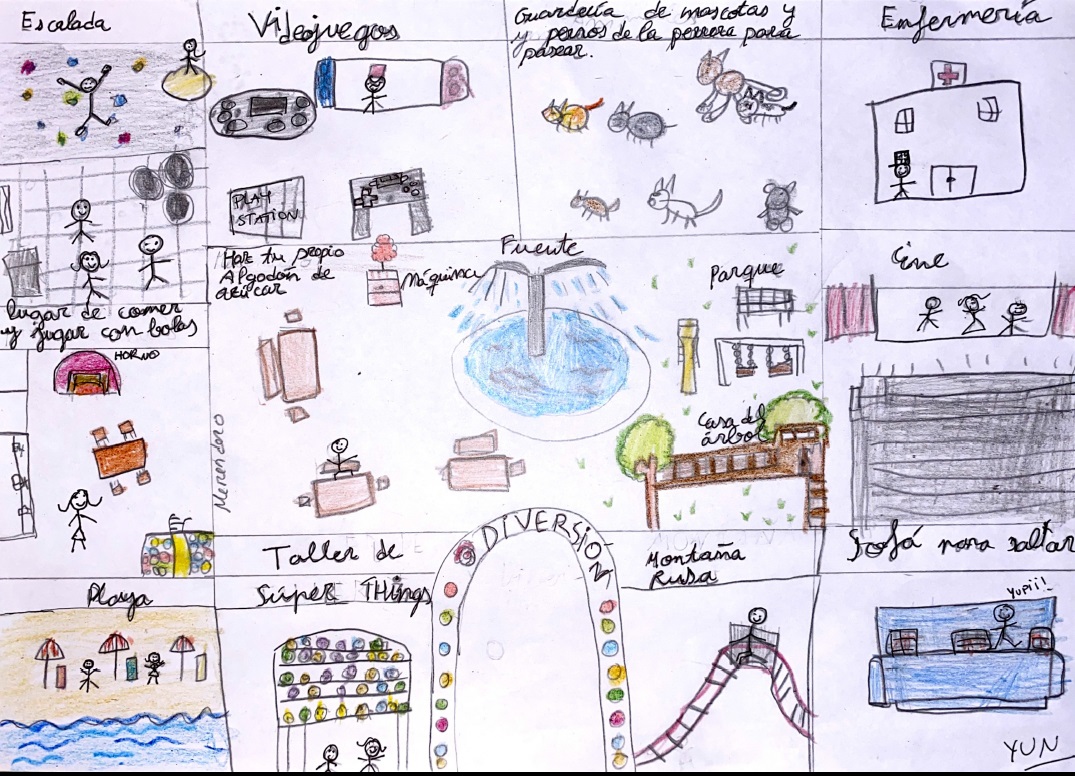 Escalada
Videojuegos
Guardería de mascotas y
y perros de la perrera para
pasear.
Enfermería
PLAY
STATION
Haz tu propio
Algodón de
azúcar
Máquina
Fuente
Parque
Cine
lugar de comer
y jugar con bolas
HORNO
Merendero
Casa del
árbol
DIVERSIÓN
Taller de
Súper THings
Montaña
Rusa
Sofá para saltar
Playa
YUPII!
YUN